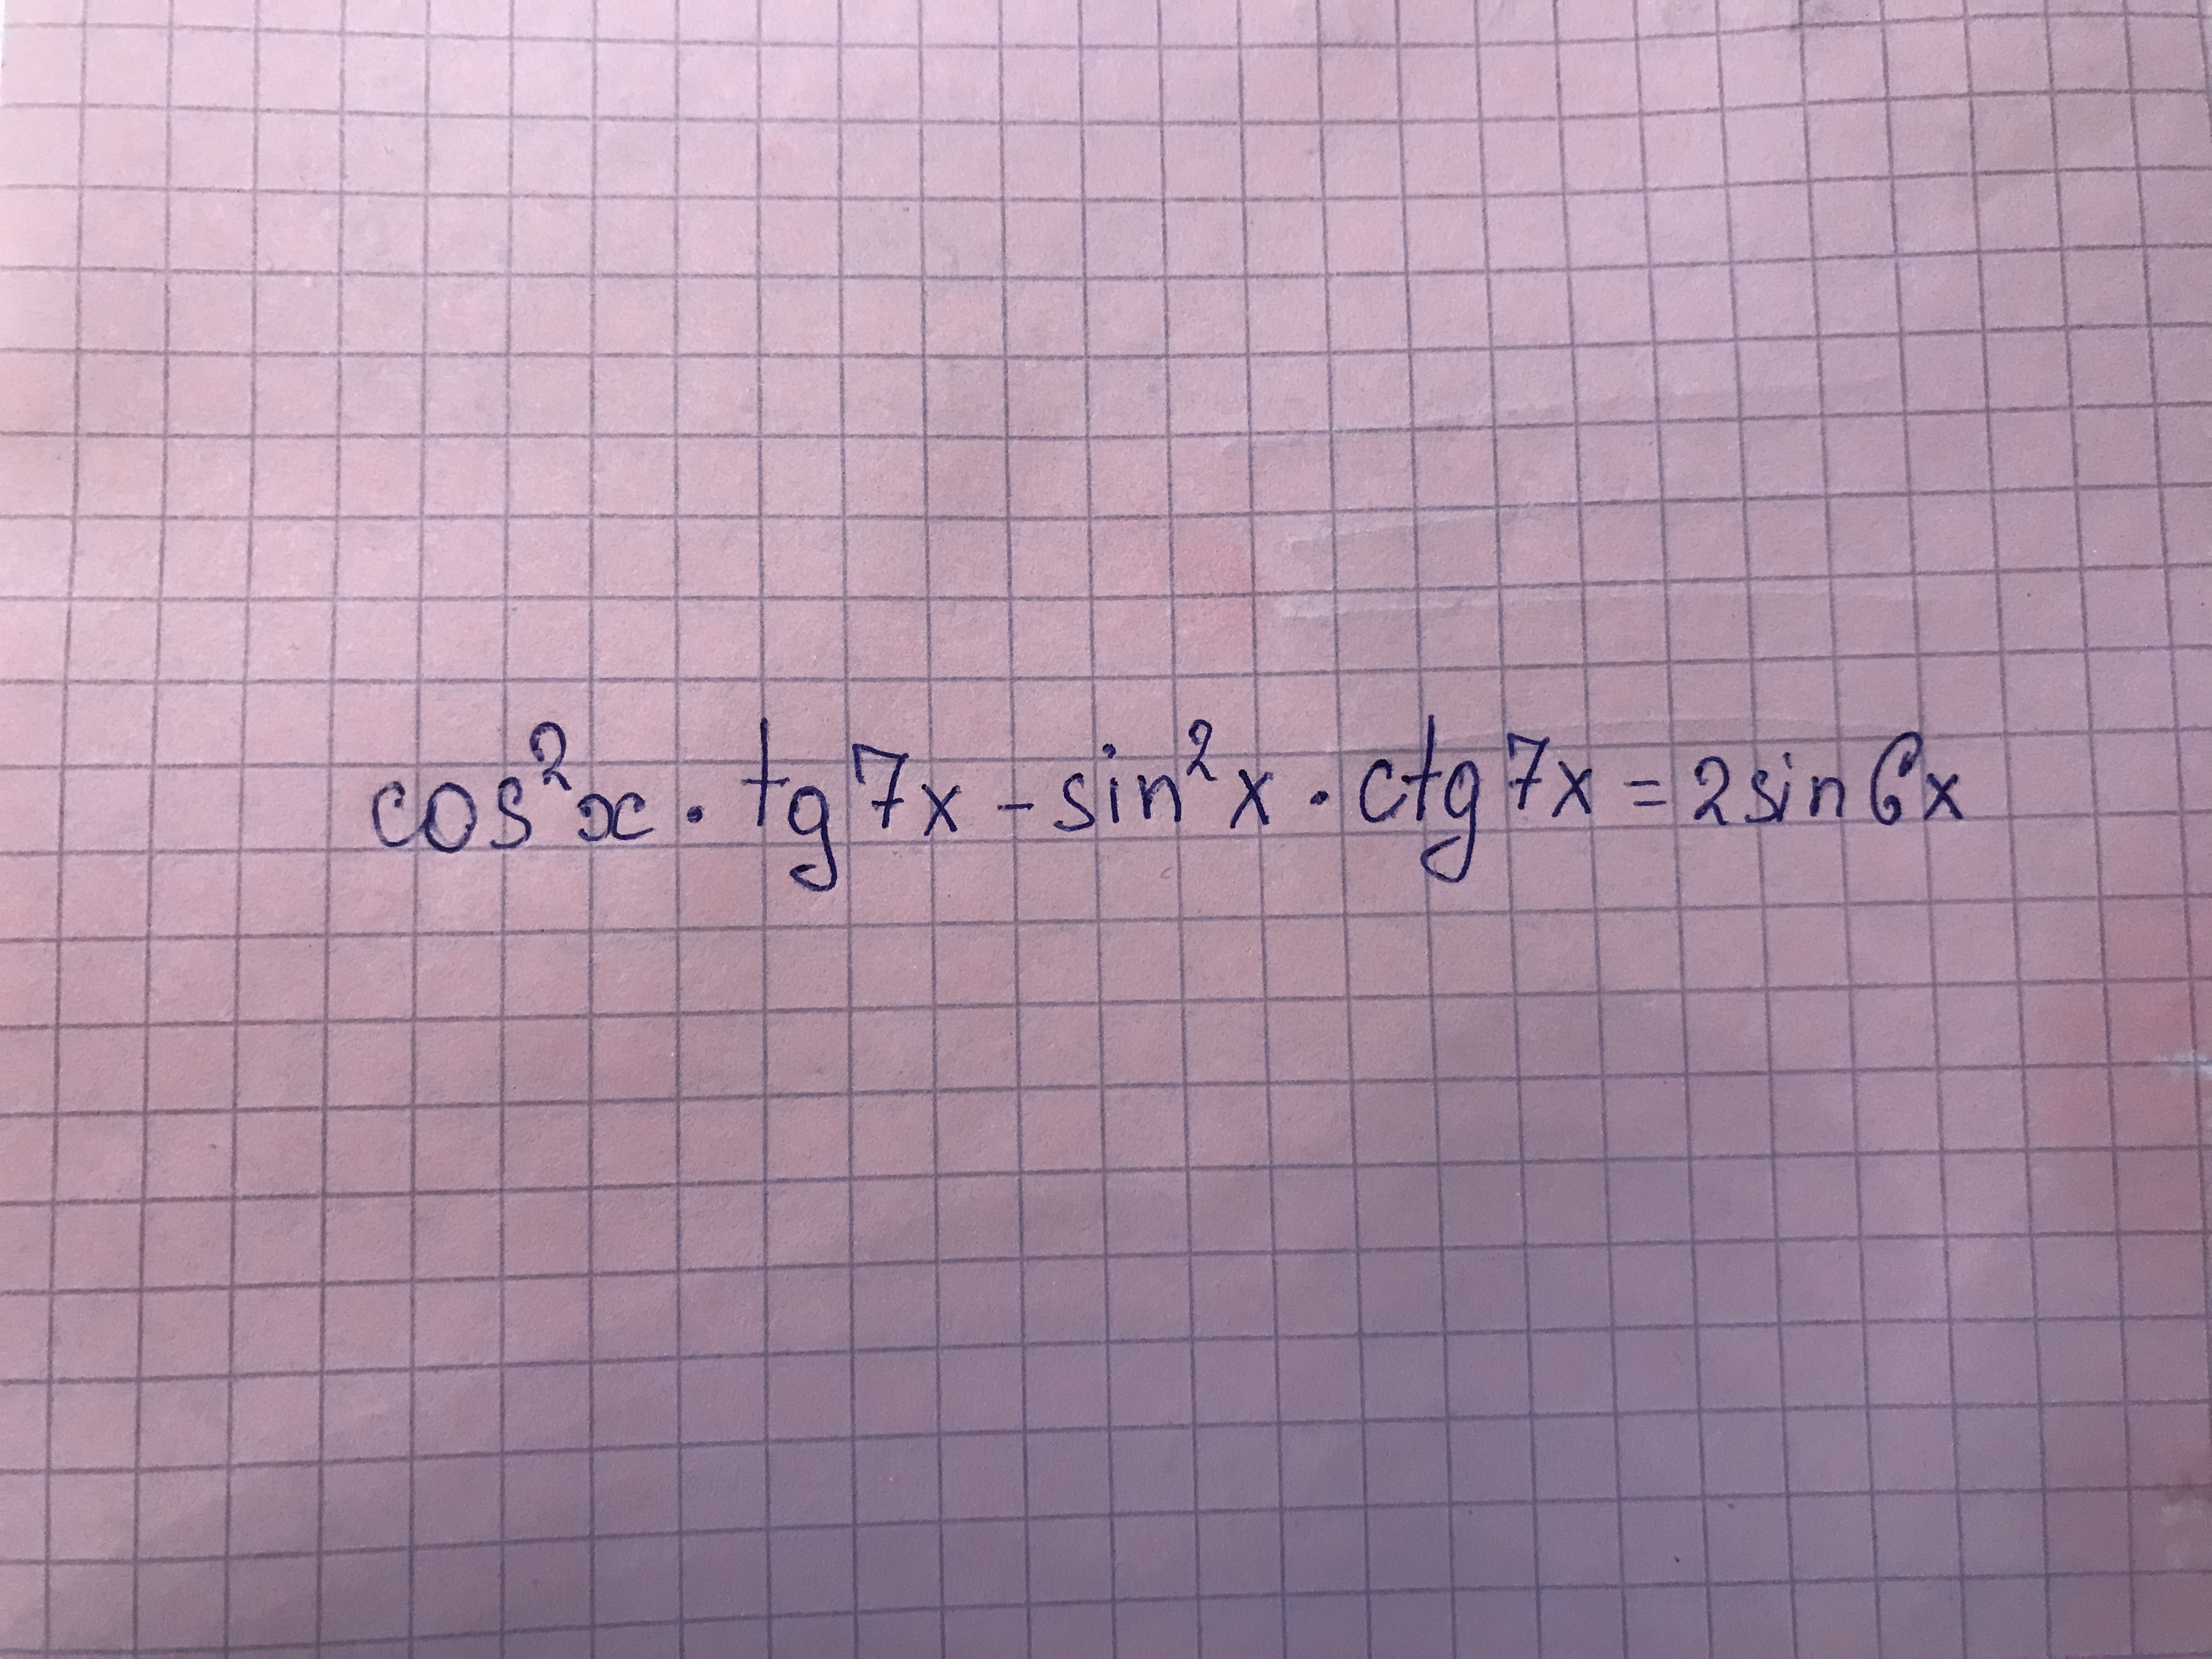 cos²x · tg7x - sin²x · ctg7x = 2sin6x